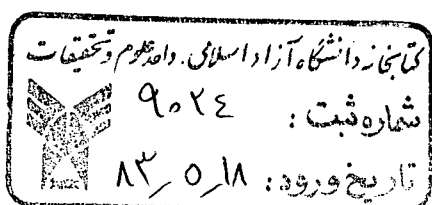 کتابخانه دانشگاه آزاد اسلامی. واحد علوم و تحقیقات
شماره ثبت : ۹۰۲۴
تاریخ ورود: ۸۳٫۵٫۱۸